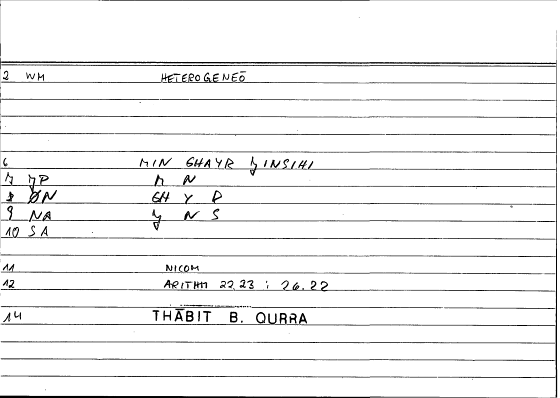 2 WM HETEROGENEŌ
6 MIN GHAYR ǦINSIHI
ǦP M N
ØN GH Y R
9 NA Ǧ N S
10 SA
11 NICOM
12 ARITHM 22.23 ; 26.22
14 THĀBIT B. QURRA